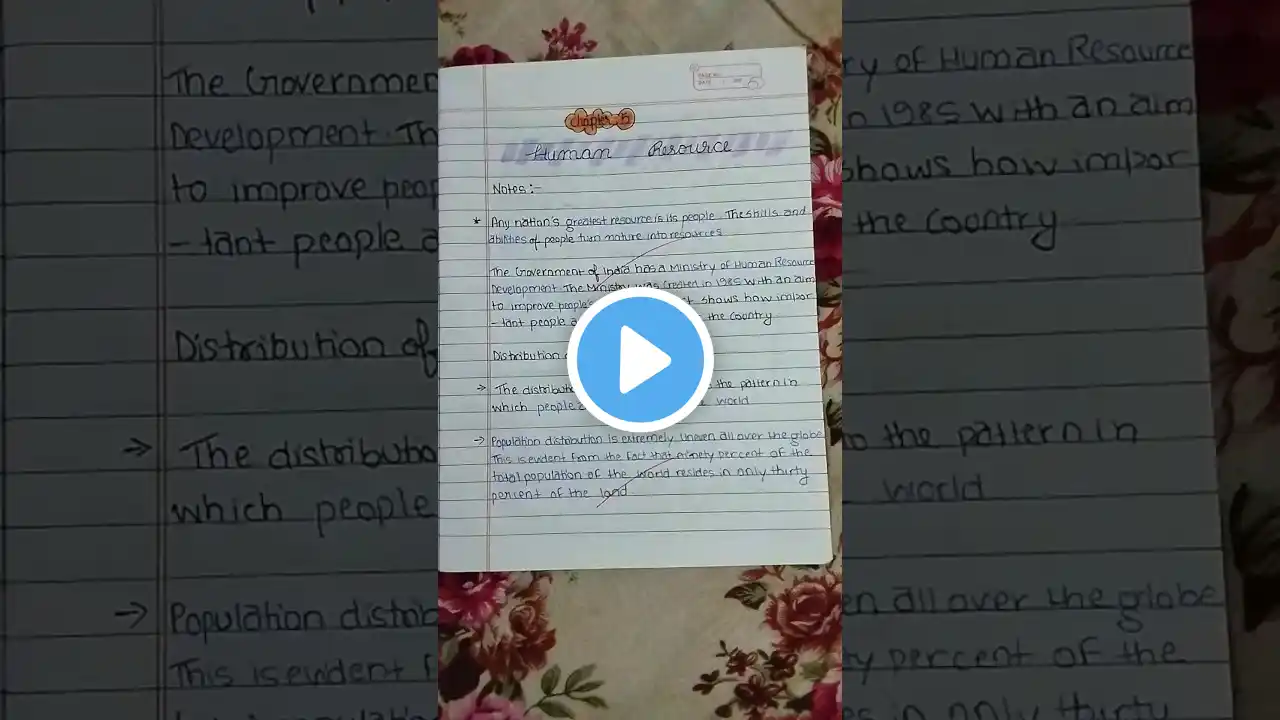 Chapter - 5
Human Resource
Notes :-
* Any nation's greatest resource is its people. The skills and
abilities of people turn nature into resources
The Government of India has a Ministry of Human Resource
Development. The Ministry was Created in 1985 with an aim
to improve people's shows how impor
- tant people a the Country
Distribution
→ The distributio the pattern in
which people a world
→ Population distribution is extremely uneven all over the globe
This is evident from the fact that ninety percent of the
total population of the world resides in only thirty
percent of the land